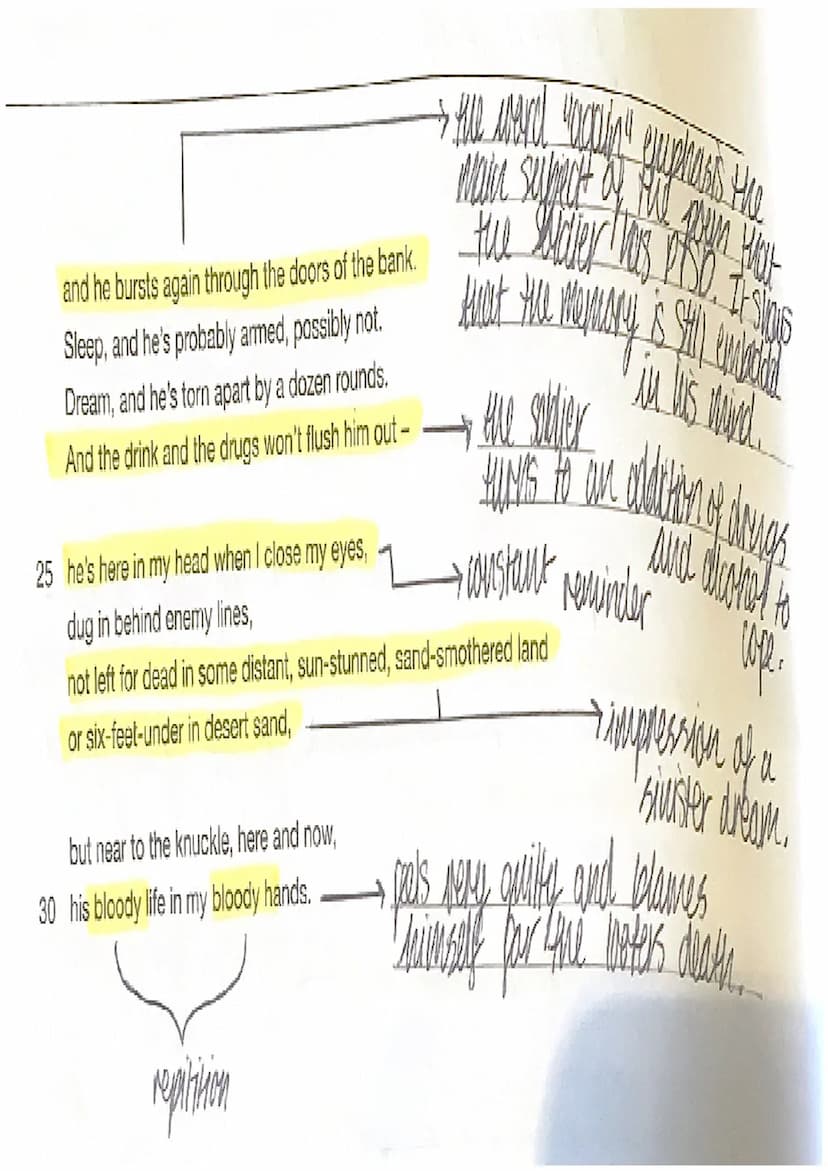 the word "again" emphasis the
main subject of the poem that
the soldier has PTSD. It shows
that the memory is still embedded
in his mind.
and he bursts again through the doors of the bank.
Sleep, and he's probably armed, possibly not.
Dream, and he's torn apart by a dozen rounds.
And the drink and the drugs won't flush him out –
the soldier
turns to an addiction of drugs
and alcohol to
cope.
25 he's here in my head when I close my eyes,
constant reminder
dug in behind enemy lines,
not left for dead in some distant, sun-stunned, sand-smothered land
or six-feet-under in desert sand,
impression of a
sinister dream.
but near to the knuckle, here and now,
30 his bloody life in my bloody hands.
feels very guilty and blames
himself for the looters death.
repitition